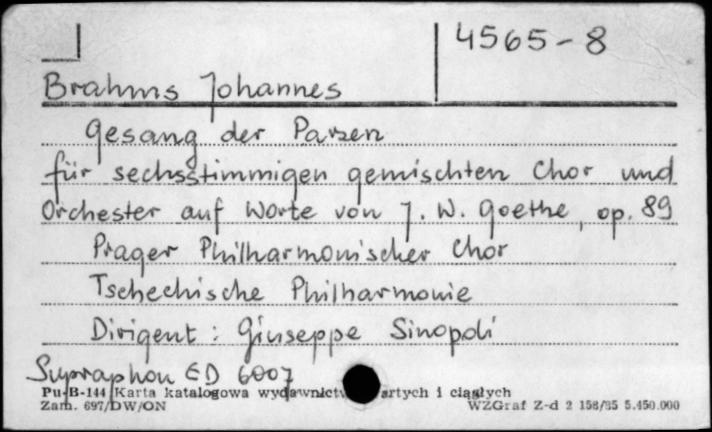 4565-8
Brahms Johannes
Gesang der Parzen
für sechsstimmigen gemischten Chor und
Orchester auf Worte von J. W. Goethe, op. 89
Prager Philharmonischer Chor
Tschechische Philharmonie
Dirigent: Giuseppe Sinopoli
Supraphon ED 6007
Pu-B-144 Karta katalogowa wydawnictw artych i ciągłych
Zam. 697/DW/ON WZGraf Z-d 2 158/85 5.450.000